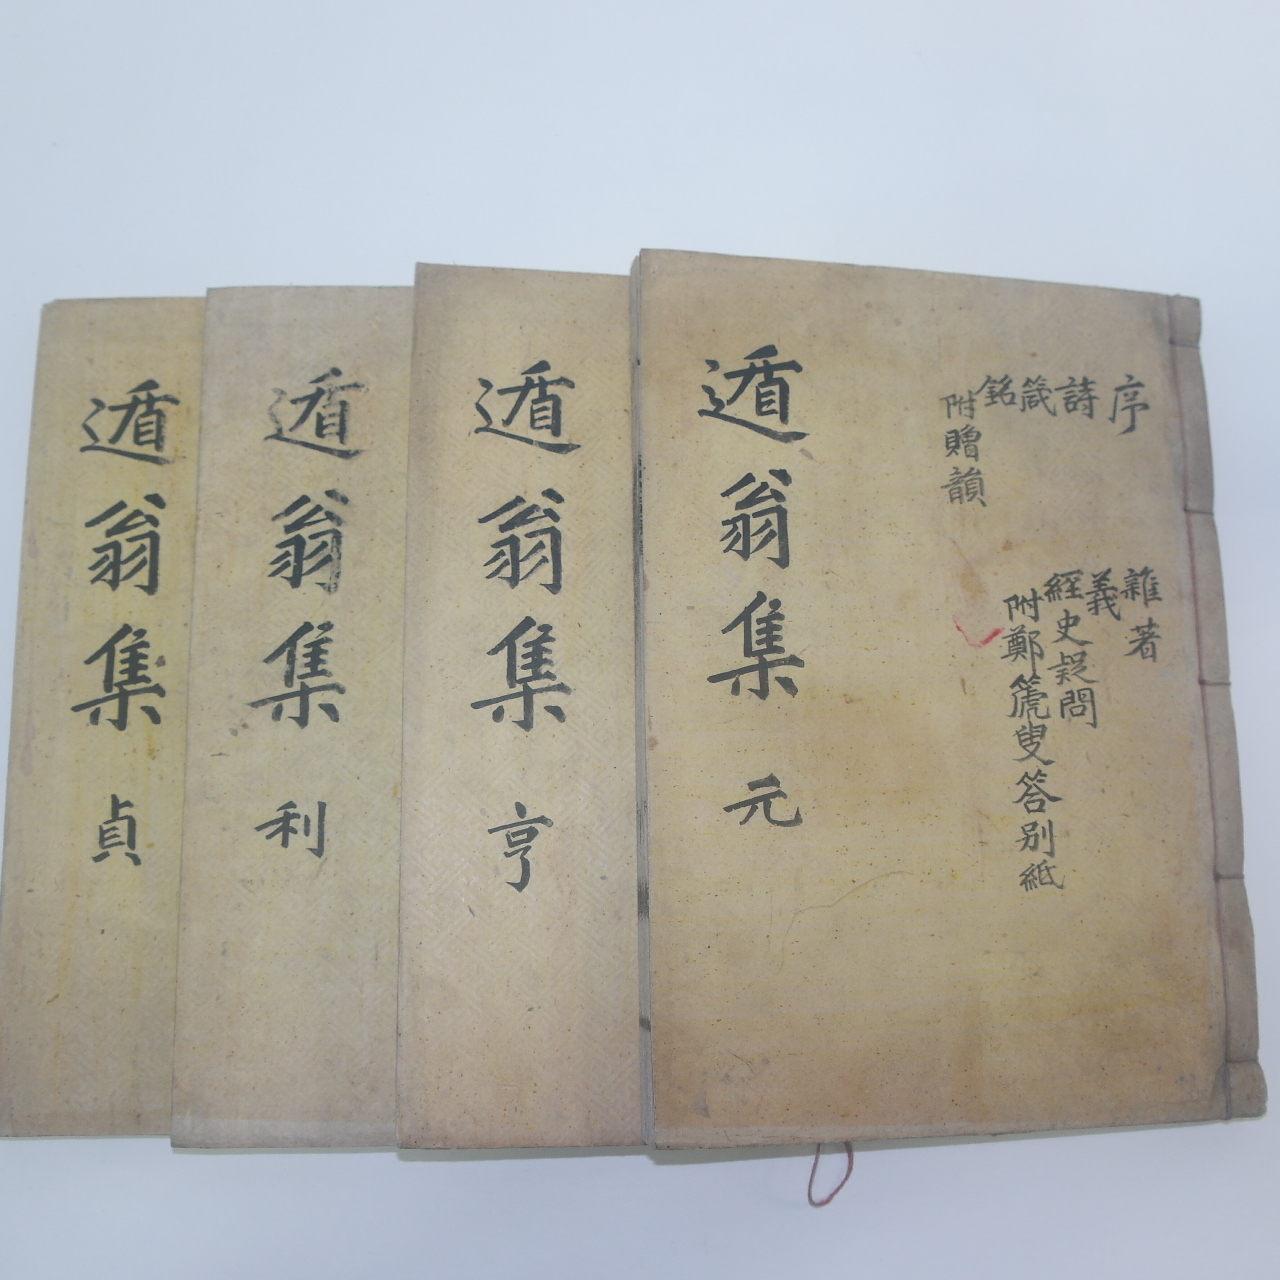 序
詩
箴
銘
附贈韻
雜著
義
經史疑問
附鄭篪叟答別紙
遁翁集 元
遁翁集 亨
遁翁集 利
遁翁集 貞